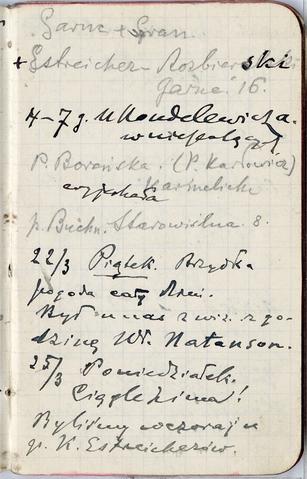 Garnc + Gran.
+ Estreicher - Rozbierski
Garnc. 16.
4-7 g. u Mondelewicza.
w
P. Boreńska. (P. Karłowicz)
Karmelicka
p. Buchn. Starowiślna 8.
22/3 Piątek. Brzydka
pogoda cały dzień.
Był u nas z wiz. z go-
dzinę Wł. Natanson.
25/3 Poniedziałek.
Ciągle zima!
Byliśmy wczoraj u
p. K. Estreicherów.